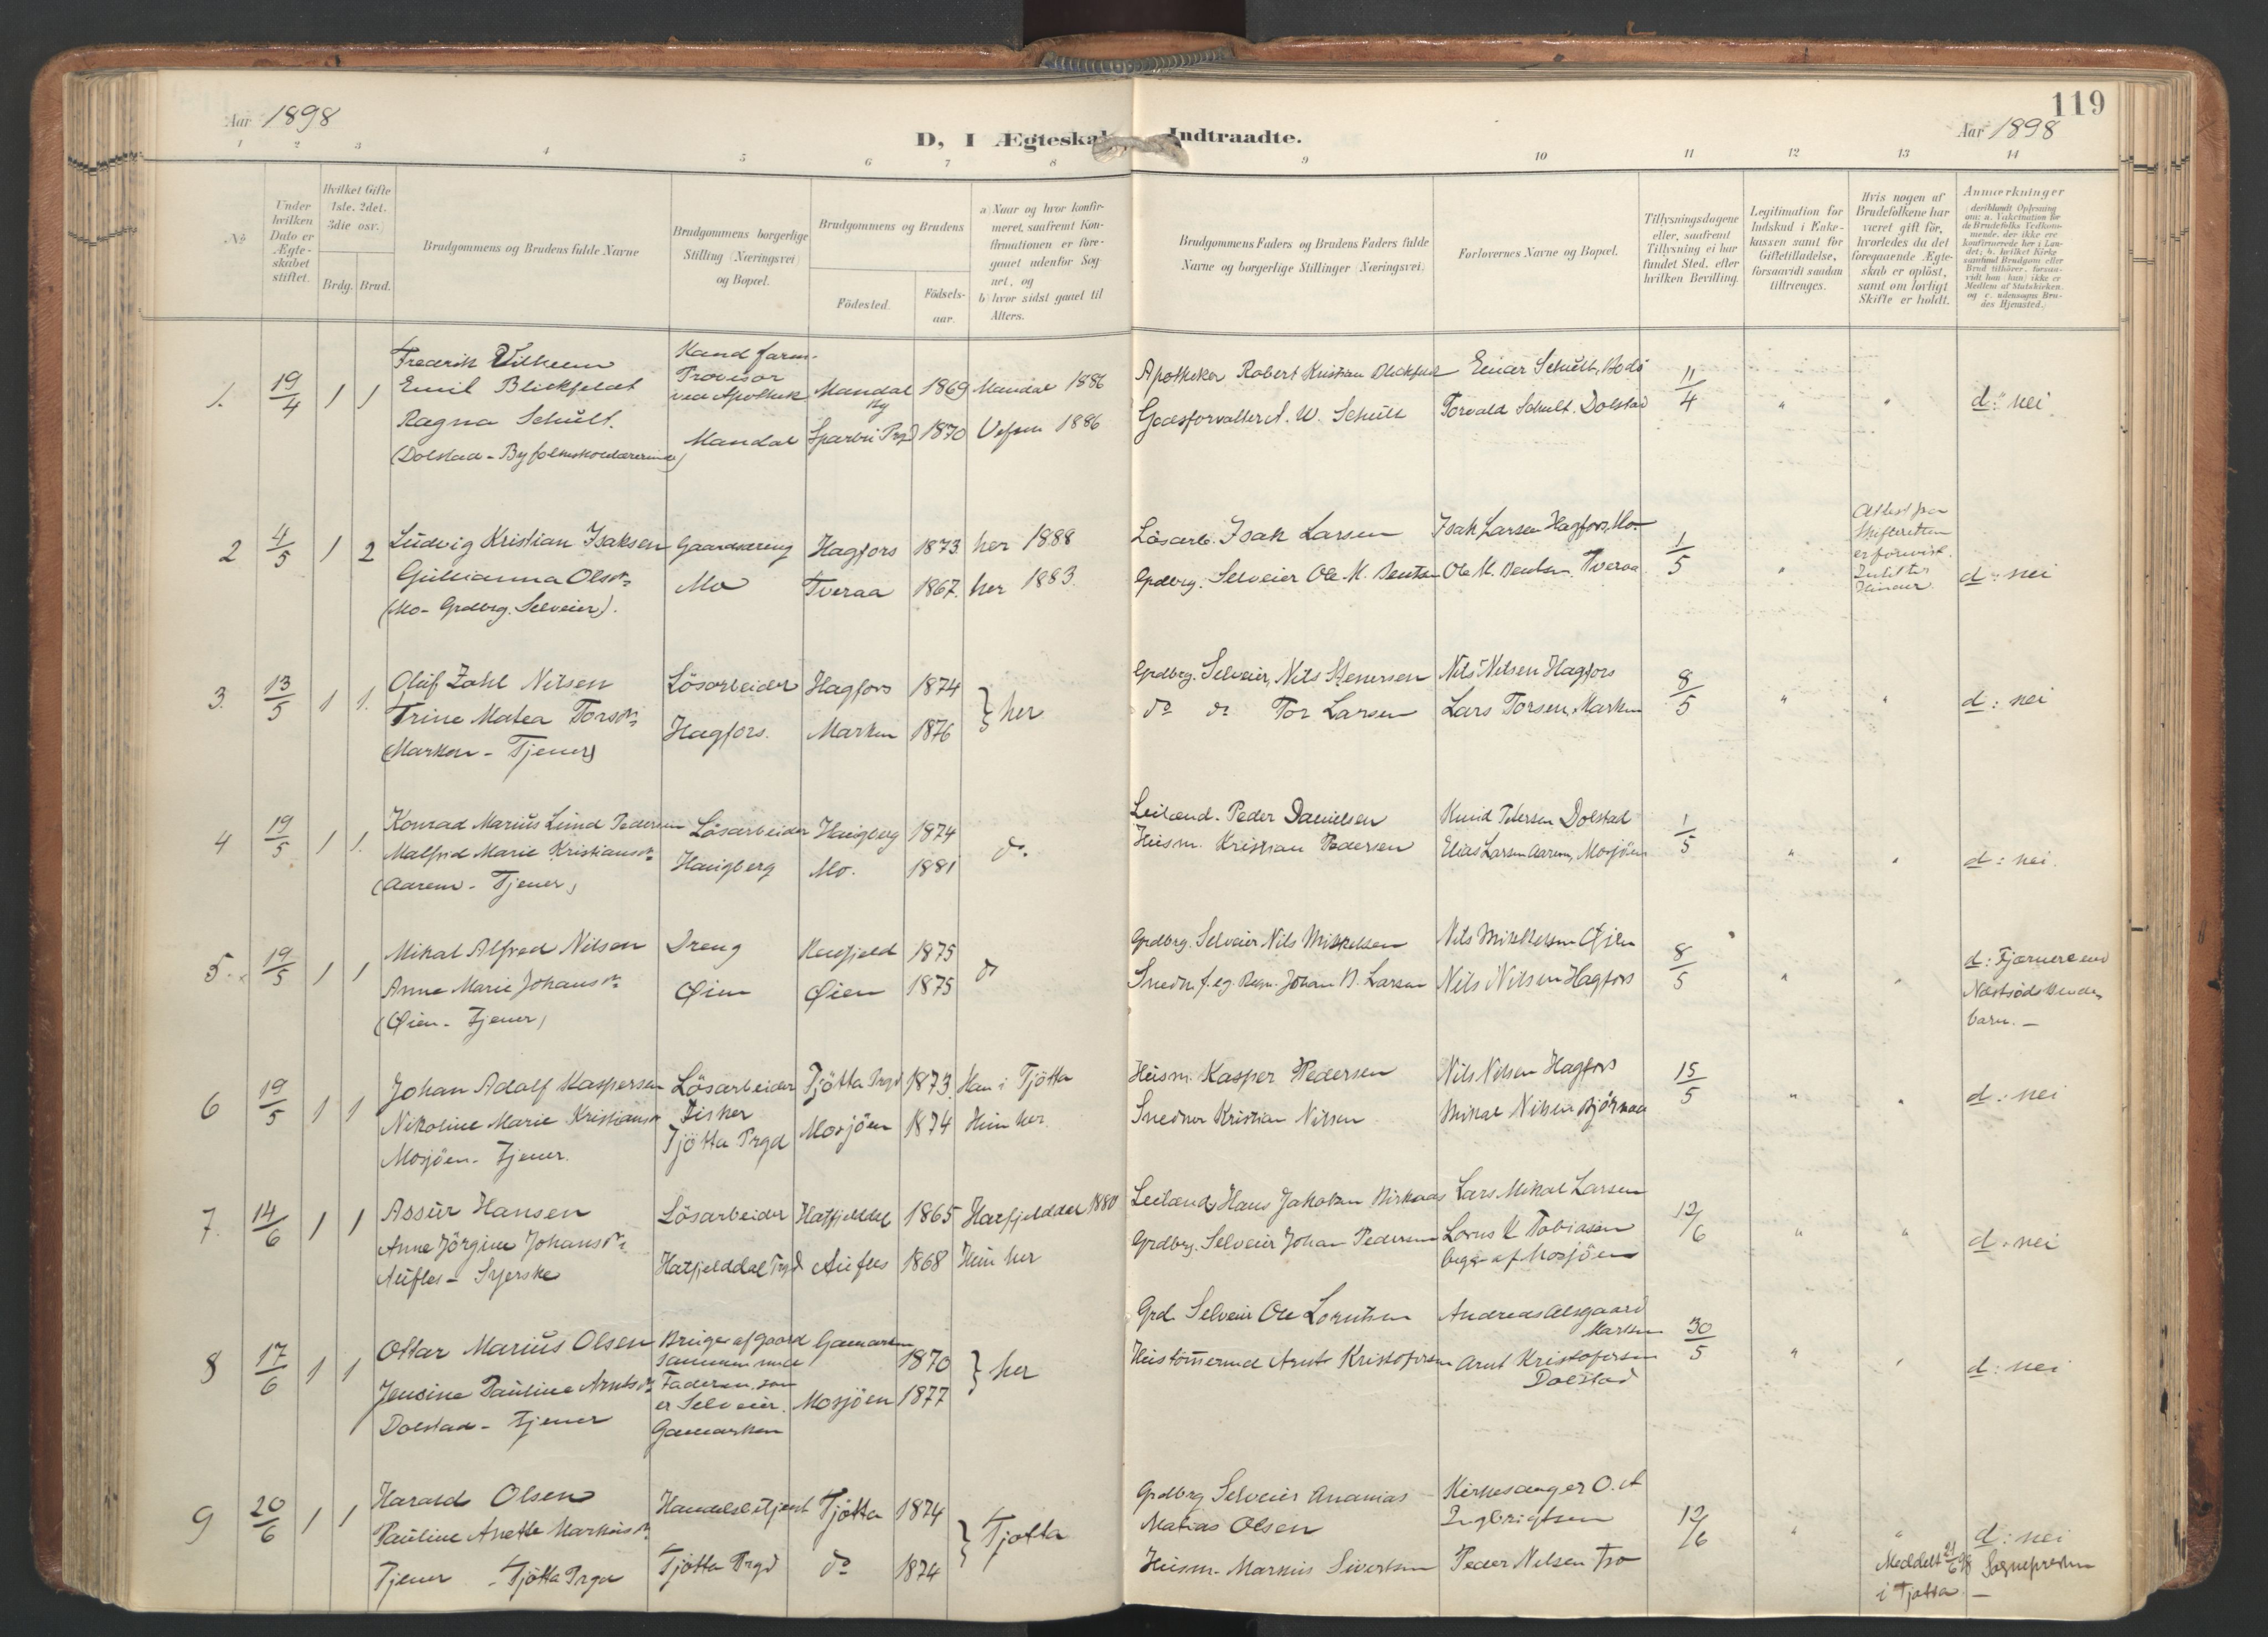 119
Aar 1898
D, I Ægteskab Indtraadte.
Aar 1898
1 2 3 4 5 6 7 8 9 10 11 12 13 14
No
Under hvilken Dato er Ægteskabet stiftet.
Hvilket Gifte 1ste, 2det, 3die osv.)
Brdg. Brud.
Brudgommens og Brudens fulde Navne
Brudgommens borgerlige Stilling (Næringsvei) og Bopæl.
Brudgommens og Brudens
Födested.
Födselsaar.
a) Naar og hvor konfirmeret, saafremt Konfirmationen er foregaaet udenfor Sognet, og
b) hvor sidst gaaet til Alters.
Brudgommens Faders og Brudens Faders fulde Navne og borgerlige Stillinger (Næringsvei)
Forlovernes Navne og Bopæl.
Tillysningsdagene eller, saafremt Tillysning ei har fundet Sted, efter hvilken Bevilling.
Legitimation for Indskud i Enkekassen samt for Giftetilladelse, forsaavidt saadan tiltrænges.
Hvis nogen af Brudefolkene har været gift för, hvorledes da det foregaaende Ægteskab er oplöst, samt om lovligt Skifte er holdt.
Anmærkninger
(deriblandt Oplysning om: a. Vakcination for de Brudefolks Vedkommende, der ikke ere konfirmerede her i Landet; b. hvilket Kirkesamfund Brudgom eller Brud tilhörer, forsaavidt han (hun) ikke er Medlem af Statskirken, og c. udensogns Brudes Hjemsted.)
1. 19/4 1 1
Fredrik Vilhelm
Emil Blickfeldt
Ragna Schult.
(Dolstad - Byfolkeskolelærerinde)
Kand farm.
Provisor
ved Apothek
Mandal
Mandal By 1869 Mandal 1886
Sparbu Prgd 1870 Vefsen 1886
Apotheker Robert Kristian Blickfeldt
Godsforvalter A. W. Schult
Einar Schult, Bodö
Torvald Schult. Dolstad
11/4 " " d: nei
2 4/5 1 2
Ludvig Kristian Isaksen
Gullianna Olsdtr
(Mo - Grdbrg. Selveier).
Gaardværeng
Mo
Hagfors 1873 her 1888
Tveraa 1867. her 1883.
Lösarb. Isak Larsen
Grdbrg. Selveier Ole K. Bentsen
Isak Larsen Hagfors, Mo
Ole K. Bentsen. Tveraa
1/5 "
Attest fra
Skifteretten
er forevist.
Intet til
Hinder.
d: nei
3. 13/5 1 1.
Oluf Zahl Nilsen
Trine Matea Torsdtr
(Marken - Tjener)
Lösarbeider
Hagfors.
Hagfors 1874
Marken 1876
} her
Grdbrg. Selveier, Nils Stenersen
do do Tor Larsen
Nils Nilsen Hagfors
Lars Torsen, Marken
8/5 " " d: nei
4 19/5 1 1.
Konrad Marius Lund Pedersen
Malfrid Marie Kristiansdtr
(Aarem - Tjener)
Lösarbeider
Haugberg
Haugberg 1874
Mo. 1881
do.
Leilænd. Peder Danielsen
Husm. Kristian Pedersen
Knud Petersen Dolstad
Elias Larsen Aarem, Mosjöen
1/5 " " d: nei.
5. 19/5 1 1
Mikal Alfred Nilsen
Anne Marie Johansdtr
(Øien - Tjener)
Dreng
Øien
1875
Øien 1875
do
Grdbrg. Selveier Nils Mikkelsen
Snedk f. eg. Regn. Johan B. Larsen
Nils Mikkelsen Øien
Nils Nilsen Hagfors
8/5 " "
d: Fjernere end
Næstsødskende-
barn. -
6 19/5 1 1
Johan Adolf Kaspersen
Nikoline Marie Kristiansdtr
Mosjöen - Tjener.
Lösarbeider
Fisker
Tjötta Prgd
Tjötta Prgd 1873. Han i Tjötta
Mosjöen 1874 Hun her.
Husm. Kasper Pedersen
Snedker Kristian Nilsen
Nils Nilsen Hagfors
Mikal Nilsen Bjørnaa
15/5 " " d: nei
7. 14/6 1 1
Assur Hansen
Anne Jörgine Johansdtr
Aufles - Syerske
Lösarbeider
Hatfjelddal Prgd
Hatfjelddal 1865 Hatfjelddal 1880
Aufles 1868 Hun her
Leilænd, Hans Jakobsen
Grdbrg. Selveier Johan Pedersen
Lars Mikal Larsen
Lorns K Tobiasen
begge af Mosjöen
12/6 " " d: nei
8 17/6 1 1
Ottar Marius Olsen
Jensine Pauline Arntsdtr
Dolstad - Tjener
Bruger af Gaard
sammen med
Faderen, som
er Selveier.
Gamarken
Gamarken 1870
Mosjöen 1877
} her
Grd Selveier Ole Lorntsen
Hustömrmd Arnt Kristofersen
Andreas Olsgaard
Marken
Arnt Kristofersen
Dolstad
30/5 " " d: nei
9 20/6 1 1
Harald Olsen
Pauline Anette Markusdtr
Tjener - Tjötta Prgd
Handelsbetjent
Tjötta Prgd
Tjötta 1874
do 1874
} Tjøtta
Grdbrg Selveier Ananias
Matias Olsen
Husm. Markus Sivertsen
Kirkesanger O. A
Ingbrigtsen
Peder Nilsen Tro
12/6 " " d: nei
Meddelt 21/6 98 Sognepresten
i Tjøtta. -